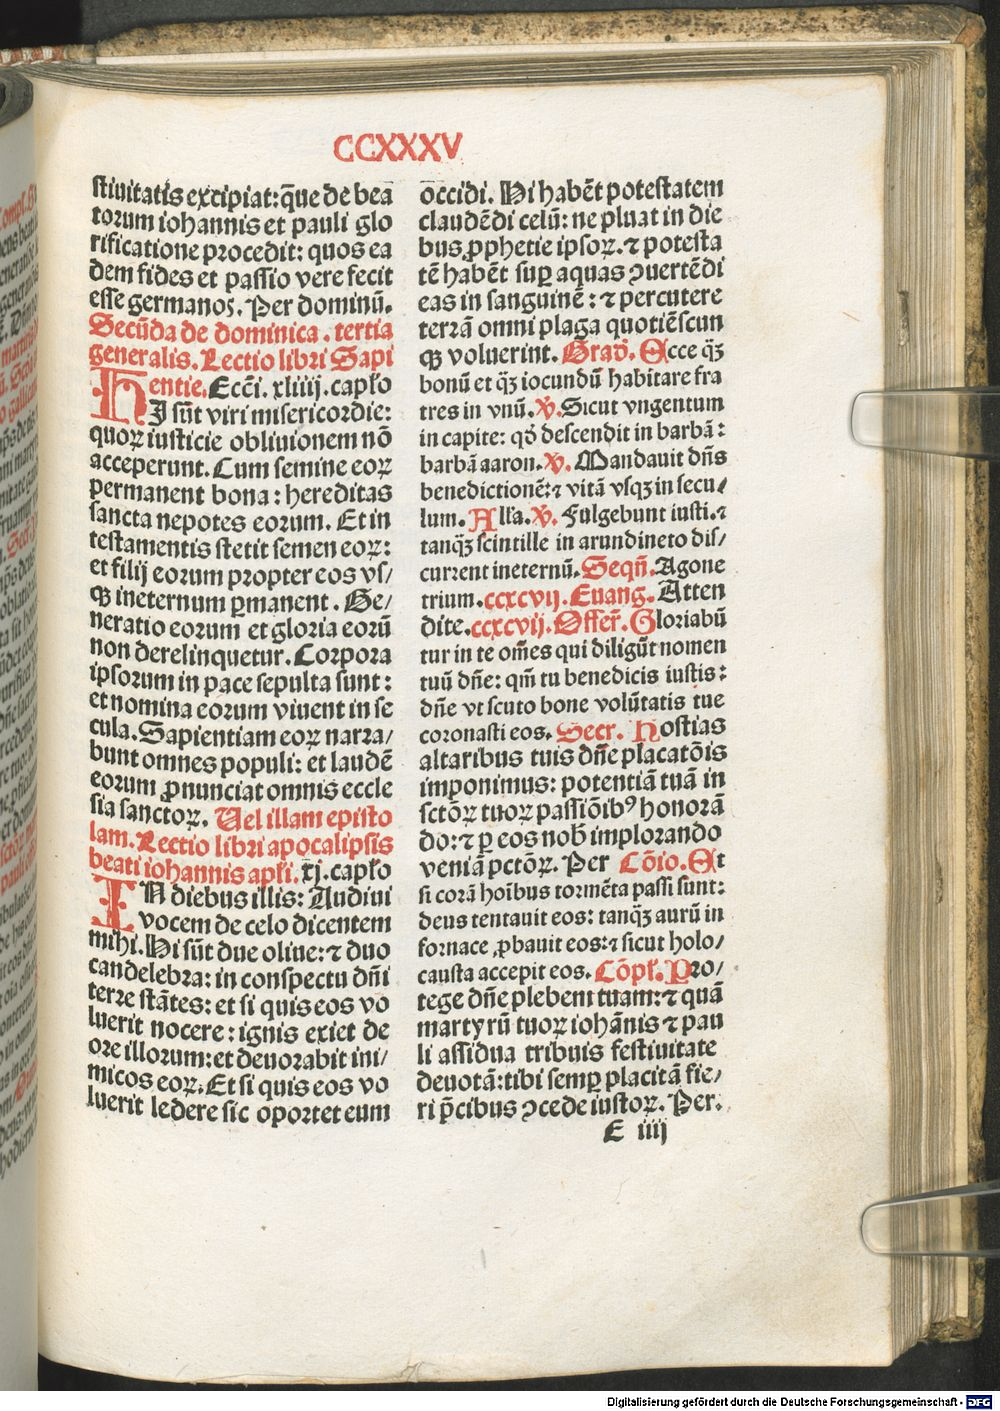 CCXXXV
stiuitatis excipiat: q̄ue de bea
torum iohannis et pauli glo
rificatione procedit: quos ea
dem fides et passio vere fecit
esse germanos. Per dominū.
Secūda de dominica. tertia
generalis. Lectio libri Sapi
entie. Ecc̄i. xliiij. capło
HI sūt viri misericordie:
quoꝝ iusticie obliuionem nō
acceperunt. Cum semine eoꝝ
permanent bona: hereditas
sancta nepotes eorum. Et in
testamentis stetit semen eoꝝ:
et filij eorum propter eos vs/
qꝫ ineternum ꝑmanent. Ge/
neratio eorum et gloria eorū
non derelinquetur. Corpora
ipsorum in pace sepulta sunt:
et nomina eorum viuent in se
cula. Sapientiam eoꝝ narra/
bunt omnes populi: et laudē
eorum ꝓnunciat omnis eccle
sia sanctoꝝ. Uel illam episto
lam. Lectio libri apocalipsis
beati iohannis apłi. xj. capło
IN diebus illis: Audiui
vocem de celo dicentem
mihi. Hi sūt due oliue: ⁊ duo
candelebra: in conspectu dn̄i
terre stātes: et si quis eos vo
luerit nocere: ignis exiet de
ore illorum: et deuorabit ini/
micos eoꝝ. Et si quis eos vo
luerit ledere sic oportet eum
occidi. Hi habēt potestatem
claudēdi celū: ne pluat in die
bus ꝓphetie ipsoꝝ. ⁊ potesta
tē habēt suꝑ aquas ꝯuertēdi
eas in sanguinē: ⁊ percutere
terrā omni plaga quotiēscun
qꝫ voluerint. Grad̄. Ecce qꝫ̄
bonū et qꝫ̄ iocundū habitare fra
tres in vnū. ℣. Sicut vngentum
in capite: qd̄ descendit in barbā:
barbā aaron. ℣. Mandauit dn̄s
benedictionē: ⁊ vitā vsqꝫ in secu/
lum. Alła. ℣. Fulgebunt iusti. ⁊
tanqꝫ̄ scintille in arundineto dis/
current ineternū. Seqn̄. Agone
trium. ccxcvij. Euang. Atten
dite. ccxcvij. Offer̄. Gloriabū
tur in te om̄es qui diligūt nomen
tuū dn̄e: qm̄ tu benedicis iustis:
dn̄e vt scuto bone volūtatis tue
coronasti eos. Secr. Hostias
altaribus tuis dn̄e placatōis
imponimus: potentiā tuā in
sctōꝝ tuoꝝ passiōibꝰ honorā
do: ⁊ ꝑ eos nob̄ implorando
veniā pctōꝝ. Per Cōio. Et
si corā hoībus tormēta passi sunt:
deus tentauit eos: tanqꝫ̄ aurū in
fornace ꝓbauit eos: ⁊ sicut holo/
causta accepit eos. Cōpł. Pro/
tege dn̄e plebem tuam: ⁊ quā
martyrū tuoꝝ iohānis ⁊ pau
li assidua tribuis festiuitate
deuotā: tibi semꝑ placitā fie/
ri p̄cibus ꝯcede iustoꝝ. Per.
E iiij
Digitalisierung gefördert durch die Deutsche Forschungsgemeinschaft - DFG